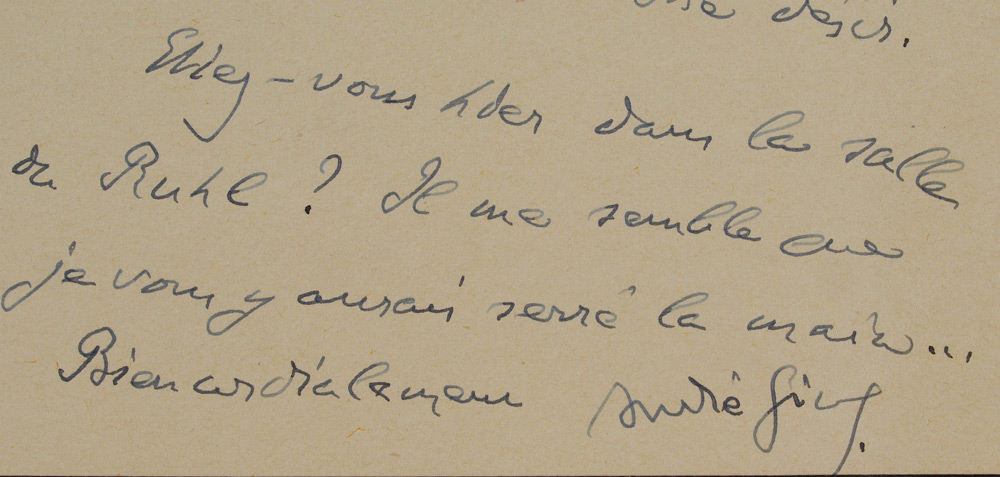 désir.
Etiez-vous hier dans la salle
du Ruhl ? Il me semble que
je vous y aurais serré la main...
Bien cordialement André Gide.